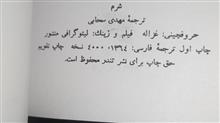 شرم
ترجمهٔ مهدی سحابی
حروفچینی: غزاله   فیلم و زینک: لیتوگرافی منشور
چاپ اول ترجمهٔ فارسی: ۱۳۶۴، ۴۰۰۰ نسخه   چاپ تقویم
حق چاپ برای نشر تندر محفوظ است.